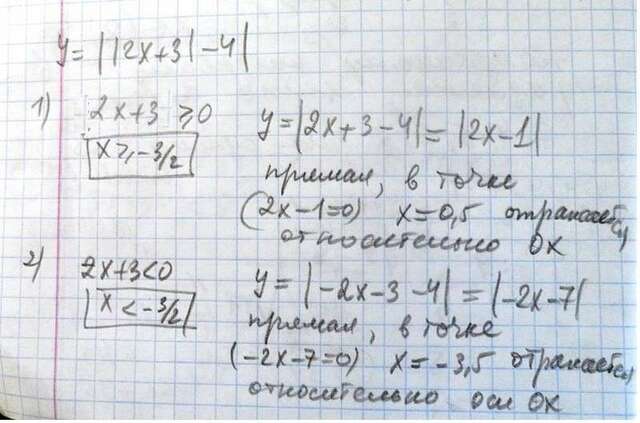 y = ||2x+3|-4|
1) 2x+3 ≥0 y=|2x+3-4|=|2x-1|
x ≥ -3/2
прямая, в точке
(2x-1=0) x=0,5 отражается
относительно OX
2) 2x+3<0 y = |-2x-3-4|=|-2x-7|
x < -3/2
прямая, в точке
(-2x-7=0) x=-3,5 отражается
относительно оси OX